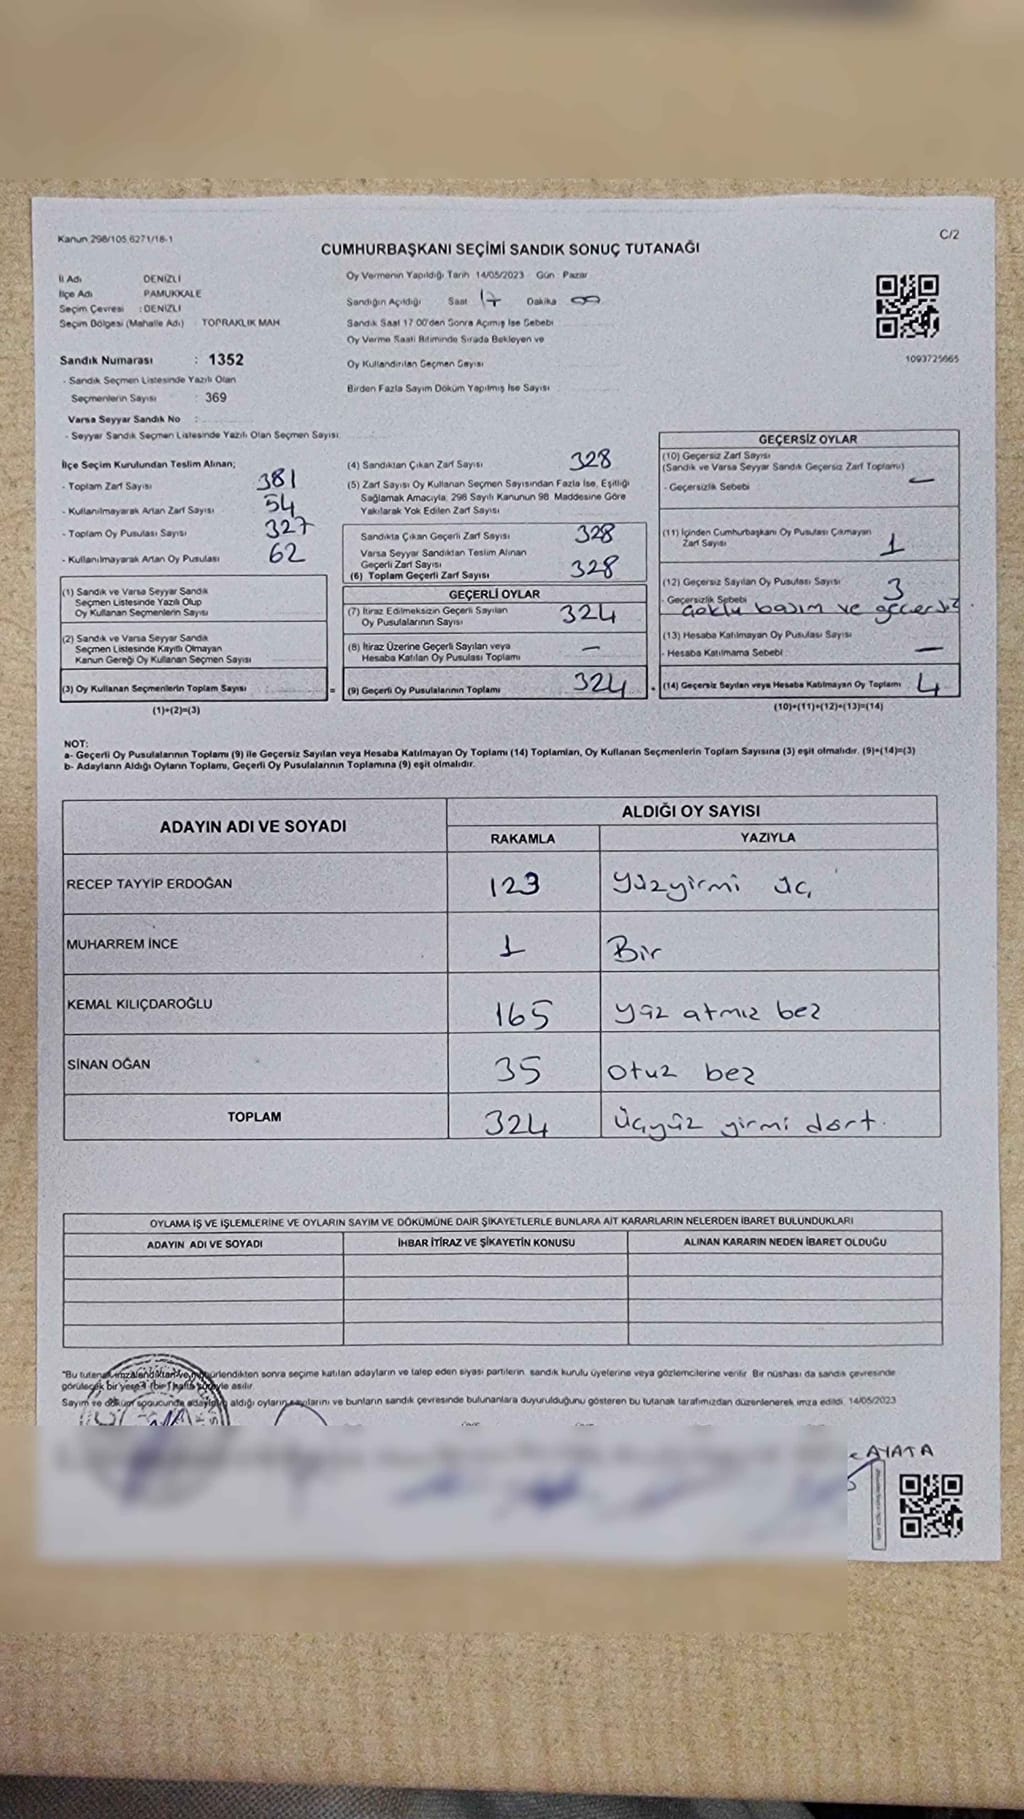 Kanun 298/105,6271/18-1
C/2
CUMHURBAŞKANI SEÇİMİ SANDIK SONUÇ TUTANAĞI
İl Adı DENİZLİ
İlçe Adı PAMUKKALE
Seçim Çevresi : DENİZLİ
Seçim Bölgesi (Mahalle Adı) TOPRAKLIK MAH
Oy Vermenin Yapıldığı Tarih 14/05/2023 Gün : Pazar
Sandığın Açıldığı Saat 17 Dakika 00
Sandık Saat 17 00'den Sonra Açımış İse Sebebi
Oy Verme Saati Bitiminde Sırada Bekleyen ve
Oy Kullandırılan Seçmen Sayısı
Birden Fazla Sayım Döküm Yapılmış İse Sayısı
1093725665
Sandık Numarası : 1352
- Sandık Seçmen Listesinde Yazılı Olan
Seçmenlerin Sayısı : 369
Varsa Seyyar Sandık No :
- Seyyar Sandık Seçmen Listesinde Yazılı Olan Seçmen Sayısı:
İlçe Seçim Kurulundan Teslim Alınan;
- Toplam Zarf Sayısı 381
- Kullanılmayarak Artan Zarf Sayısı 54
- Toplam Oy Pusulası Sayısı 327
- Kullanılmayarak Artan Oy Pusulası 62
(1) Sandık ve Varsa Seyyar Sandık
Seçmen Listesinde Yazılı Olup
Oy Kullanan Seçmenlerin Sayısı
(2) Sandık ve Varsa Seyyar Sandık
Seçmen Listesinde Kayıtlı Olmayan
Kanun Gereği Oy Kullanan Seçmen Sayısı
(3) Oy Kullanan Seçmenlerin Toplam Sayısı =
(1)+(2)=(3)
(4) Sandıktan Çıkan Zarf Sayısı 328
(5) Zarf Sayısı Oy Kullanan Seçmen Sayısından Fazla İse, Eşitliği
Sağlamak Amacıyla, 298 Sayılı Kanunun 98. Maddesine Göre
Yakılarak Yok Edilen Zarf Sayısı
Sandıkta Çıkan Geçerli Zarf Sayısı 328
Varsa Seyyar Sandıktan Teslim Alınan
Geçerli Zarf Sayısı
(6) Toplam Geçerli Zarf Sayısı 328
GEÇERLİ OYLAR
(7) İtiraz Edilmeksizin Geçerli Sayılan
Oy Pusulalarının Sayısı 324
(8) İtiraz Üzerine Geçerli Sayılan veya
Hesaba Katılan Oy Pusulası Toplamı –
(9) Geçerli Oy Pusulalarının Toplamı 324 +
GEÇERSİZ OYLAR
(10) Geçersiz Zarf Sayısı
(Sandık ve Varsa Seyyar Sandık Geçersiz Zarf Toplamı) –
- Geçersizlik Sebebi
(11) İçinden Cumhurbaşkanı Oy Pusulası Çıkmayan
Zarf Sayısı 1
(12) Geçersiz Sayılan Oy Pusulası Sayısı 3
- Geçersizlik Sebebi
basım ve geçersiz.
(13) Hesaba Katılmayan Oy Pusulası Sayısı –
- Hesaba Katılmama Sebebi
(14) Geçersiz Sayılan veya Hesaba Katılmayan Oy Toplamı 4
(10)+(11)+(12)+(13)=(14)
NOT:
a- Geçerli Oy Pusulalarının Toplamı (9) ile Geçersiz Sayılan veya Hesaba Katılmayan Oy Toplamı (14) Toplamları, Oy Kullanan Seçmenlerin Toplam Sayısına (3) eşit olmalıdır. (9)+(14)=(3)
b- Adayların Aldığı Oyların Toplamı, Geçerli Oy Pusulalarının Toplamına (9) eşit olmalıdır.
ADAYIN ADI VE SOYADI
ALDIĞI OY SAYISI
RAKAMLA YAZIYLA
RECEP TAYYİP ERDOĞAN 123 yüzyirmi üç
MUHARREM İNCE 1 Bir
KEMAL KILIÇDAROĞLU 165 yüz atmış beş
SİNAN OĞAN 35 otuz beş
TOPLAM 324 Üçyüz yirmi dört.
OYLAMA İŞ VE İŞLEMLERİNE VE OYLARIN SAYIM VE DÖKÜMÜNE DAİR ŞİKAYETLERLE BUNLARA AİT KARARLARIN NELERDEN İBARET BULUNDUKLARI
ADAYIN ADI VE SOYADI İHBAR İTİRAZ VE ŞİKAYETİN KONUSU ALINAN KARARIN NEDEN İBARET OLDUĞU
"Bu tutanak imzalandıktan ve mühürlendikten sonra seçime katılan adayların ve talep eden siyasi partilerin sandık kurulu üyelerine veya gözlemcilerine verilir. Bir nüshası da sandık çevresinde
görülecek bir yere 1 (bir) hafta süreyle asılır.
Sayım ve döküm sonucunda adayların aldığı oyların sayılarını ve bunların sandık çevresinde bulunanlara duyurulduğunu gösteren bu tutanak tarafımızdan düzenlenerek imza edildi. 14/05/2023
AYATA